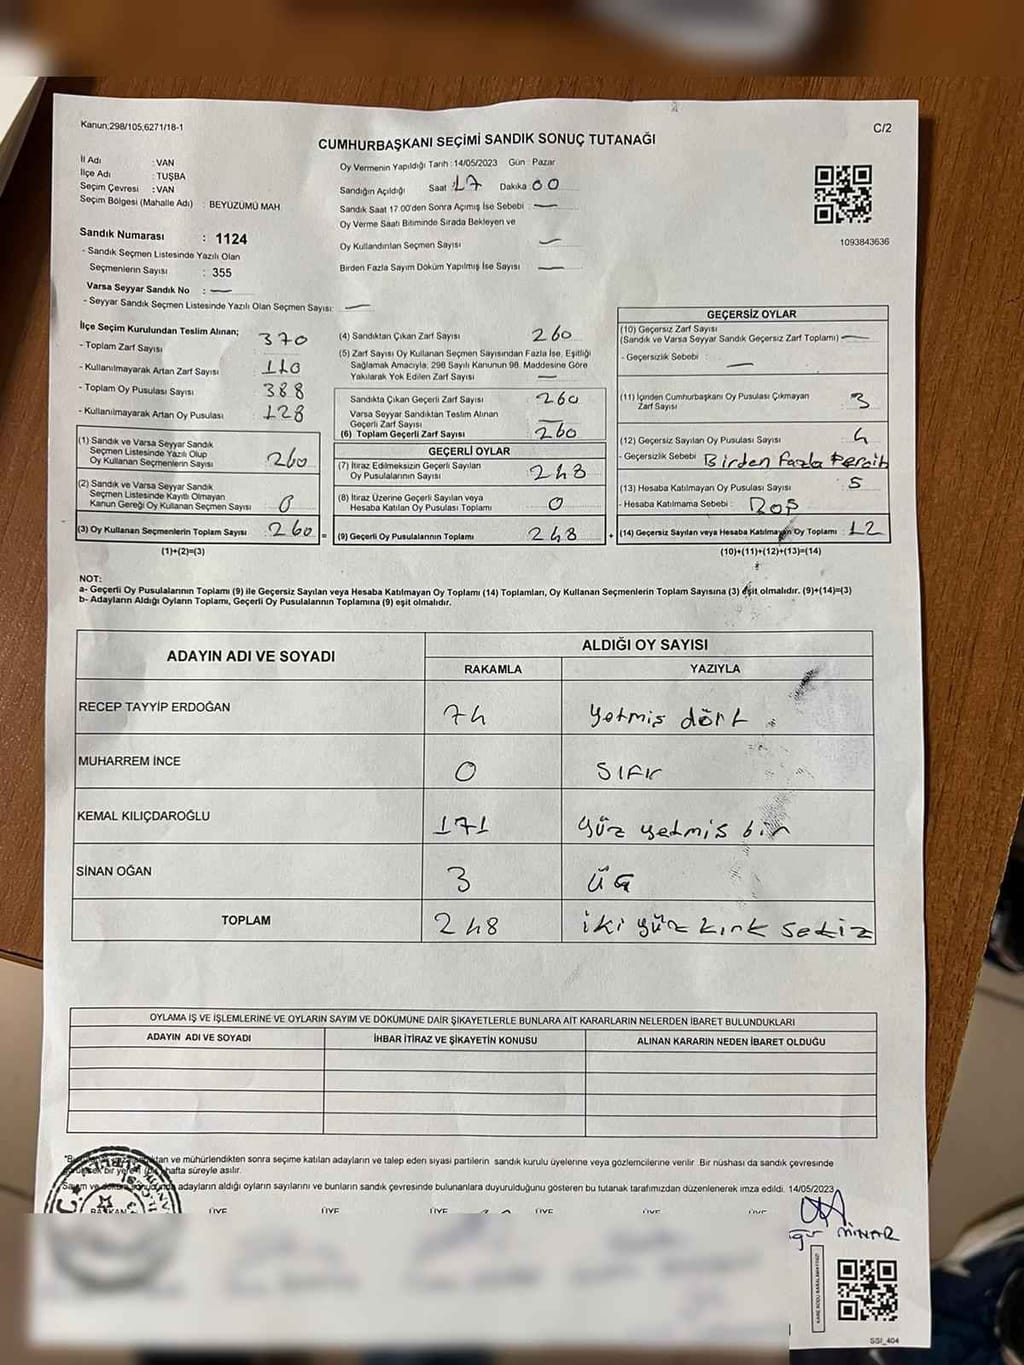 Kanun;298/105,6271/18-1
C/2
CUMHURBAŞKANI SEÇİMİ SANDIK SONUÇ TUTANAĞI
İl Adı : VAN
İlçe Adı : TUŞBA
Seçim Çevresi : VAN
Seçim Bölgesi (Mahalle Adı) : BEYÜZÜMÜ MAH
Oy Vermenin Yapıldığı Tarih : 14/05/2023 Gün : Pazar
Sandığın Açıldığı Saat 17 Dakika 00
Sandık Saat 17.00'den Sonra Açımış İse Sebebi : —
Oy Verme Saati Bitiminde Sırada Bekleyen ve
Oy Kullandırılan Seçmen Sayısı —
Birden Fazla Sayım Döküm Yapılmış İse Sayısı —
1093843636
Sandık Numarası : 1124
- Sandık Seçmen Listesinde Yazılı Olan
Seçmenlerin Sayısı : 355
Varsa Seyyar Sandık No : —
- Seyyar Sandık Seçmen Listesinde Yazılı Olan Seçmen Sayısı: —
İlçe Seçim Kurulundan Teslim Alınan;
- Toplam Zarf Sayısı 370
- Kullanılmayarak Artan Zarf Sayısı 110
- Toplam Oy Pusulası Sayısı 388
- Kullanılmayarak Artan Oy Pusulası 128
(1) Sandık ve Varsa Seyyar Sandık
Seçmen Listesinde Yazılı Olup
Oy Kullanan Seçmenlerin Sayısı 260
(2) Sandık ve Varsa Seyyar Sandık
Seçmen Listesinde Kayıtlı Olmayan
Kanun Gereği Oy Kullanan Seçmen Sayısı 0
(3) Oy Kullanan Seçmenlerin Toplam Sayısı 260
(1)+(2)=(3)
(4) Sandıktan Çıkan Zarf Sayısı 260
(5) Zarf Sayısı Oy Kullanan Seçmen Sayısından Fazla İse, Eşitliği
Sağlamak Amacıyla; 298 Sayılı Kanunun 98. Maddesine Göre
Yakılarak Yok Edilen Zarf Sayısı —
Sandıkta Çıkan Geçerli Zarf Sayısı 260
Varsa Seyyar Sandıktan Teslim Alınan
Geçerli Zarf Sayısı —
(6) Toplam Geçerli Zarf Sayısı 260
GEÇERLİ OYLAR
(7) İtiraz Edilmeksizin Geçerli Sayılan
Oy Pusulalarının Sayısı 248
(8) İtiraz Üzerine Geçerli Sayılan veya
Hesaba Katılan Oy Pusulası Toplamı 0
= (9) Geçerli Oy Pusulalarının Toplamı 248 +
GEÇERSİZ OYLAR
(10) Geçersiz Zarf Sayısı
(Sandık ve Varsa Seyyar Sandık Geçersiz Zarf Toplamı) —
- Geçersizlik Sebebi : —
(11) İçinden Cumhurbaşkanı Oy Pusulası Çıkmayan
Zarf Sayısı 3
(12) Geçersiz Sayılan Oy Pusulası Sayısı 4
- Geçersizlik Sebebi Birden fazla Tercih
(13) Hesaba Katılmayan Oy Pusulası Sayısı 5
- Hesaba Katılmama Sebebi : Boş
(14) Geçersiz Sayılan veya Hesaba Katılmayan Oy Toplamı 12
(10)+(11)+(12)+(13)=(14)
NOT:
a- Geçerli Oy Pusulalarının Toplamı (9) ile Geçersiz Sayılan veya Hesaba Katılmayan Oy Toplamı (14) Toplamları, Oy Kullanan Seçmenlerin Toplam Sayısına (3) eşit olmalıdır. (9)+(14)=(3)
b- Adayların Aldığı Oyların Toplamı, Geçerli Oy Pusulalarının Toplamına (9) eşit olmalıdır.
ADAYIN ADI VE SOYADI
ALDIĞI OY SAYISI
RAKAMLA YAZIYLA
RECEP TAYYİP ERDOĞAN 74 Yetmiş dört
MUHARREM İNCE 0 SIFIR
KEMAL KILIÇDAROĞLU 171 Yüz yetmiş bir
SİNAN OĞAN 3 üç
TOPLAM 248 iki yüz kırk sekiz
OYLAMA İŞ VE İŞLEMLERİNE VE OYLARIN SAYIM VE DÖKÜMÜNE DAİR ŞİKAYETLERLE BUNLARA AİT KARARLARIN NELERDEN İBARET BULUNDUKLARI
ADAYIN ADI VE SOYADI İHBAR İTİRAZ VE ŞİKAYETİN KONUSU ALINAN KARARIN NEDEN İBARET OLDUĞU
ve mühürlendikten sonra seçime katılan adayların ve talep eden siyasi partilerin sandık kurulu üyelerine veya gözlemcilerine verilir. Bir nüshası da sandık çevresinde
hafta süreyle asılır.
adayların aldığı oyların sayılarını ve bunların sandık çevresinde bulunanlara duyurulduğunu gösteren bu tutanak tarafımızdan düzenlenerek imza edildi. 14/05/2023
BAŞKAN ÜYE ÜYE ÜYE ÜYE ÜYE ÜYE
MINAR
SSI_404